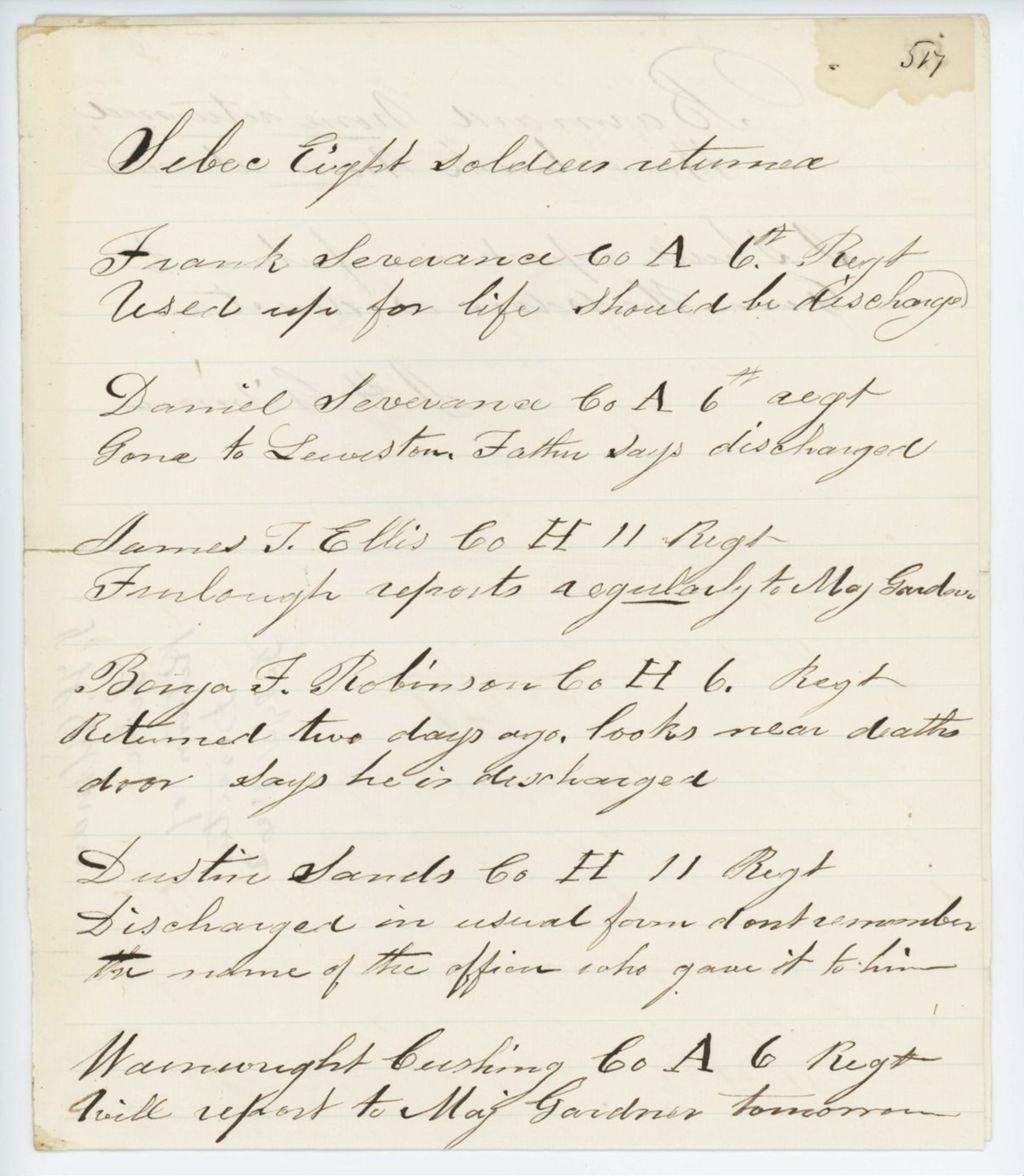 517
Sebec Eight soldiers returned
Frank Severance Co A 6.th Regt
Used up for life should be discharged
Daniel Severance Co A 6th regt
Gone to Lewiston. Father says discharged
James T. Ellis Co H 11 Regt
Furlough reports regularly to Maj Gardner
Benja F. Robinson Co H 6. Regt
Returned two days ago. looks near deaths
door says he is discharged
Dustin Sands Co H 11 Regt
Discharged in usual form dont remember
the name of the officer who gave it to him
Wainwright Cushing Co A 6 Regt
Will report to Maj Gardner tomorrow